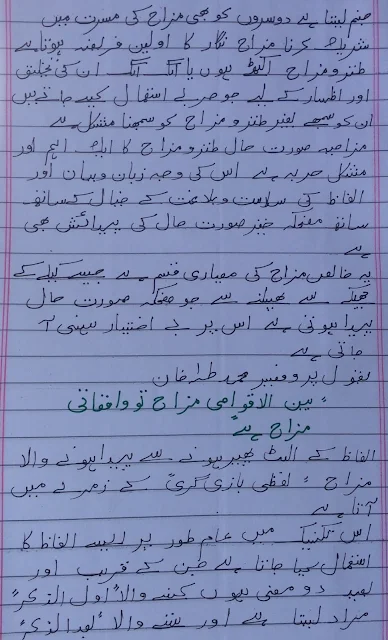 جنم لیتا ہے دوسروں کو بھی مزاح کی مسرت میں
شریک کرنا مزاح نگار کا اولین فریضہ ہوتا ہے
طنز و مزاح اکیلے ہوں یا الگ الگ ان کی تخلیق
اور اظہار کے لیے جو حربے استعمال کیے جاتے ہیں
ان کو سمجھے بغیر طنز و مزاح کو سمجھنا مشکل ہے
مزاحیہ صورت حال طنز و مزاح کا ایک اہم اور
مشکل حربہ ہے اس کی وجہ زبان و بیان اور
الفاظ کی سلاست و بلاغت کے خیال کے ساتھ
ساتھ مضحکہ خیز صورت حال کی پیدائش بھی
ہے
یہ خالص مزاح کی معیاری قسم ہے جیسے کیلے کے
چھلکے سے پھسلنے سے جو مضحکہ صورت حال
پیدا ہوتی ہے اس پر بے اختیار ہنسی آ
جاتی ہے
بقول پروفیسر محمد طہ خان
"بین الاقوامی مزاح تو واقعاتی
مزاح ہے"
الفاظ کے الٹ پھیر ہونے سے پیدا ہونے والا
مزاح "لفظی بازی گری" کے زمرے میں
آتا ہے
اس تکنیک میں عام طور پر ایسے الفاظ کا
استعمال کیا جاتا ہے جن کے قریب اور
بعید دو معنی ہوں کہنے والا "اول الذکر"
مراد لیتا ہے اور سننے والا "بعد الذکر"